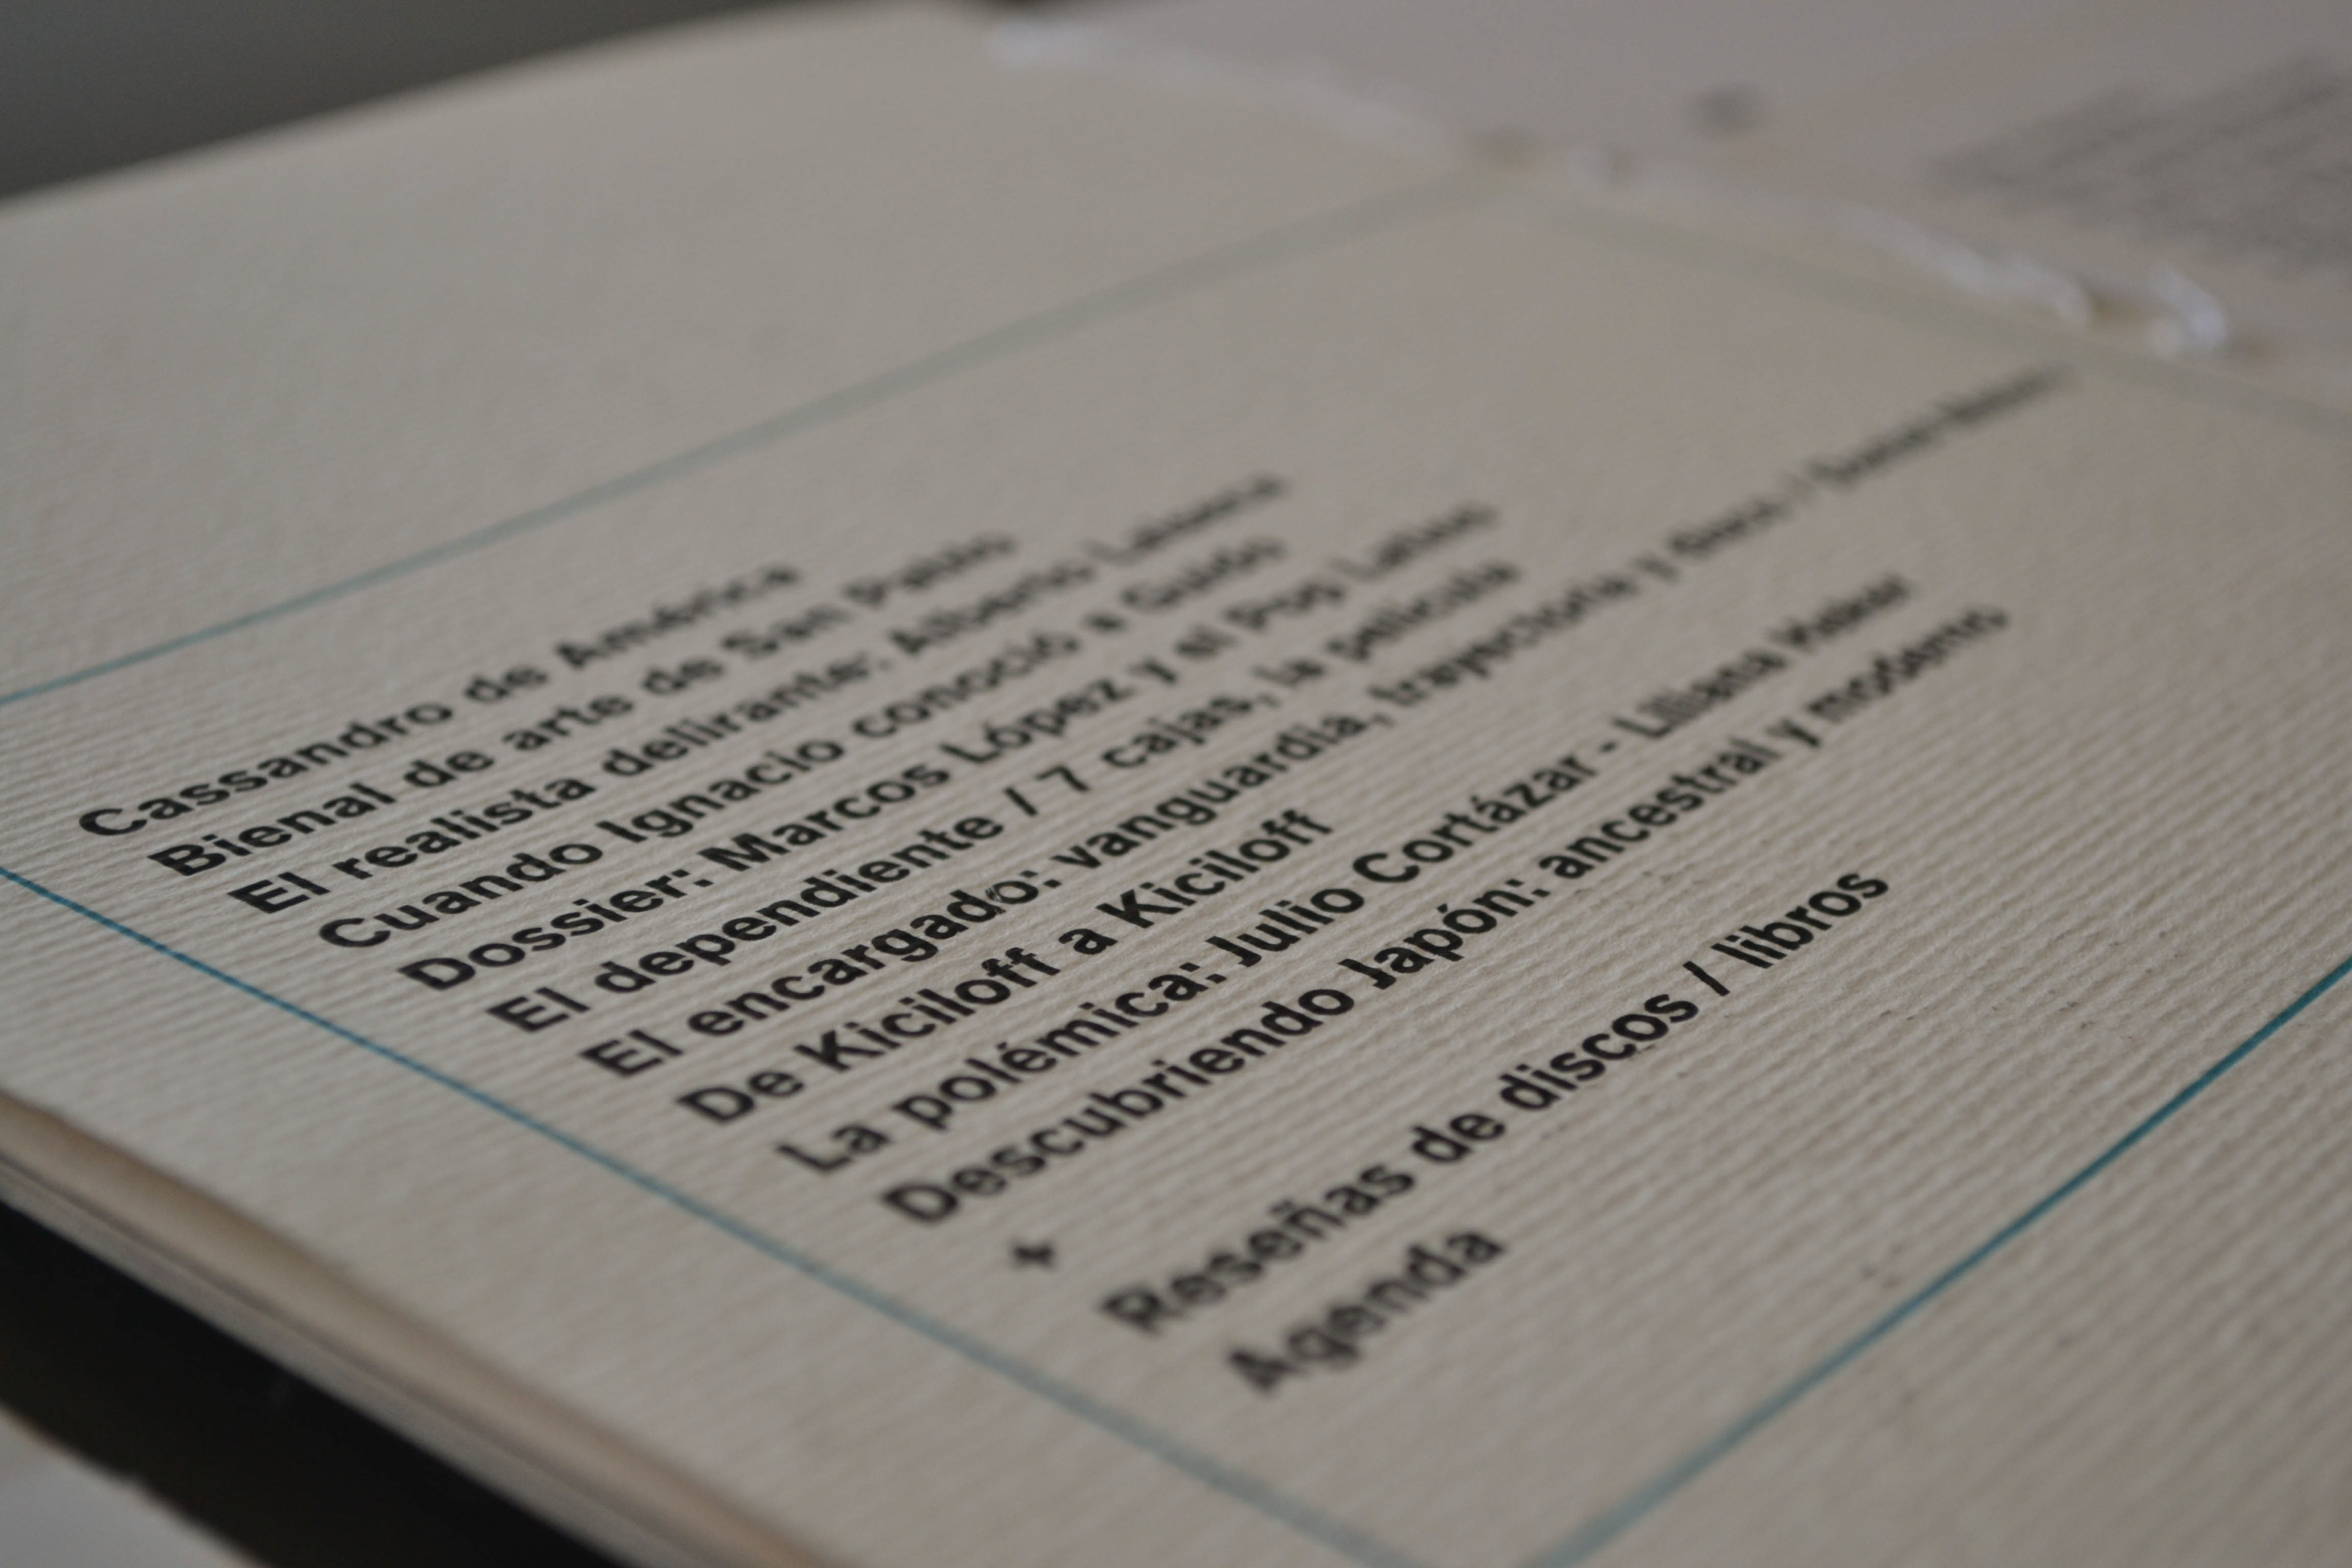 Cassandro de América
Bienal de arte de San Pablo
El realista delirante: Alberto Laiseca
Cuando Ignacio conoció a Guido
Dossier: Marcos López y el Pop Latino
El dependiente / 7 cajas, la película
El encargado: vanguardia, trayectoria y
De Kiciloff a Kiciloff
La polémica: Julio Cortázar - Liliana Heker
Descubriendo Japón: ancestral y moderno
+
Reseñas de discos / libros
Agenda